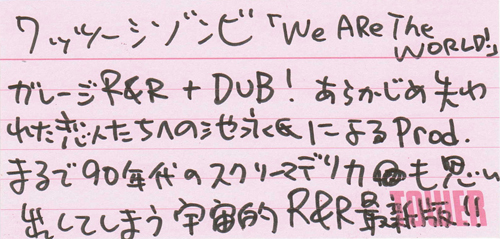 ワッツーシゾンビ「We ARe The WORLD!」
ガレージR&R + DUB! あらかじめ失わ
れた恋人たちへの池永氏によるProd.
まるで90年代のスクリーマデリカも思い
出してしまう宇宙的R&R最新版!!
TOWER